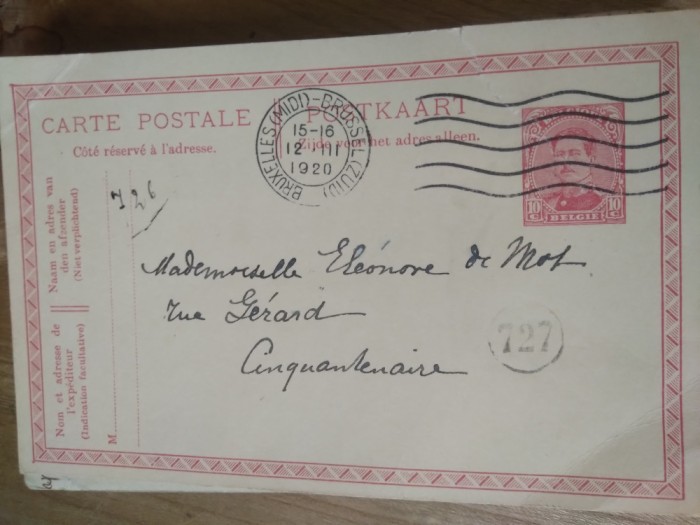 CARTE POSTALE POSTKAART
Côté réservé à l'adresse. Zijde voor het adres alleen.
BRUXELLES (MIDI)-BRUSSEL (ZUID)
15-16
12 III
1920
10 C BELGIE 10 C
Naam en adres van
den afzender
(Niet verplichtend)
Nom et adresse de
l'expéditeur
(Indication facultative)
M
726
Mademoiselle Eléonore de Mot
rue Gérard
Cinquantenaire
727